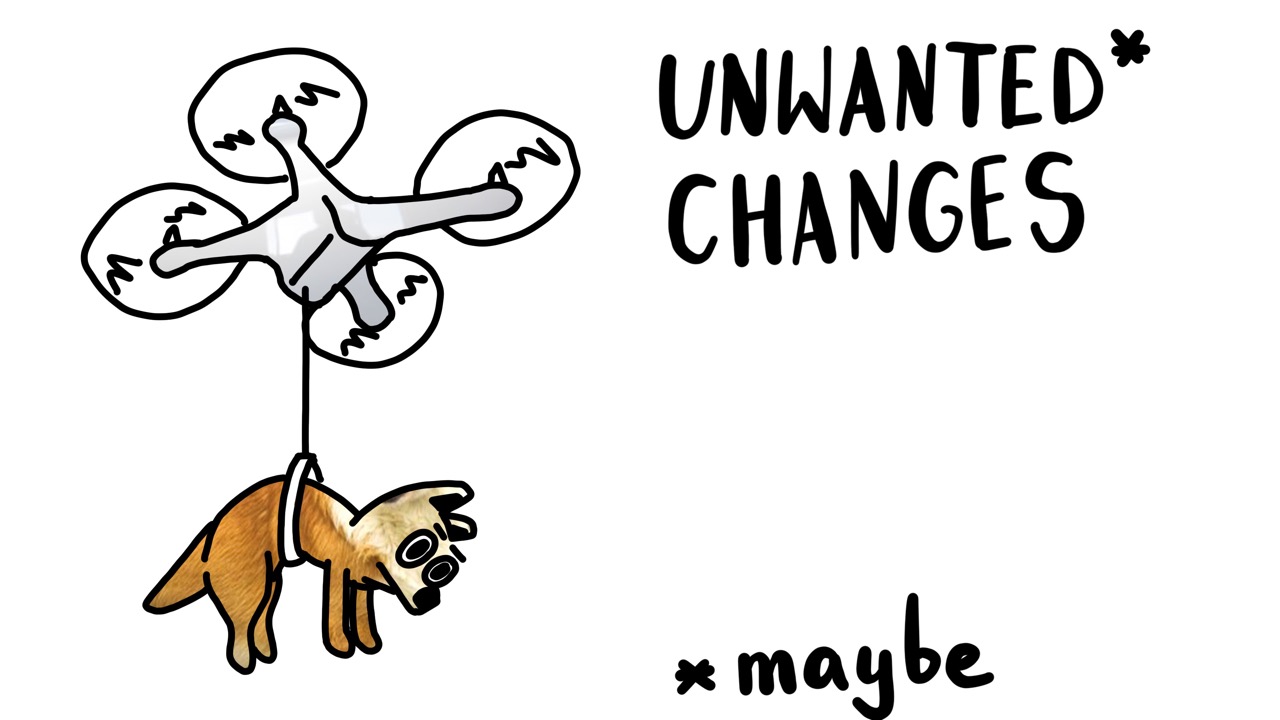 UNWANTED*
CHANGES
*maybe